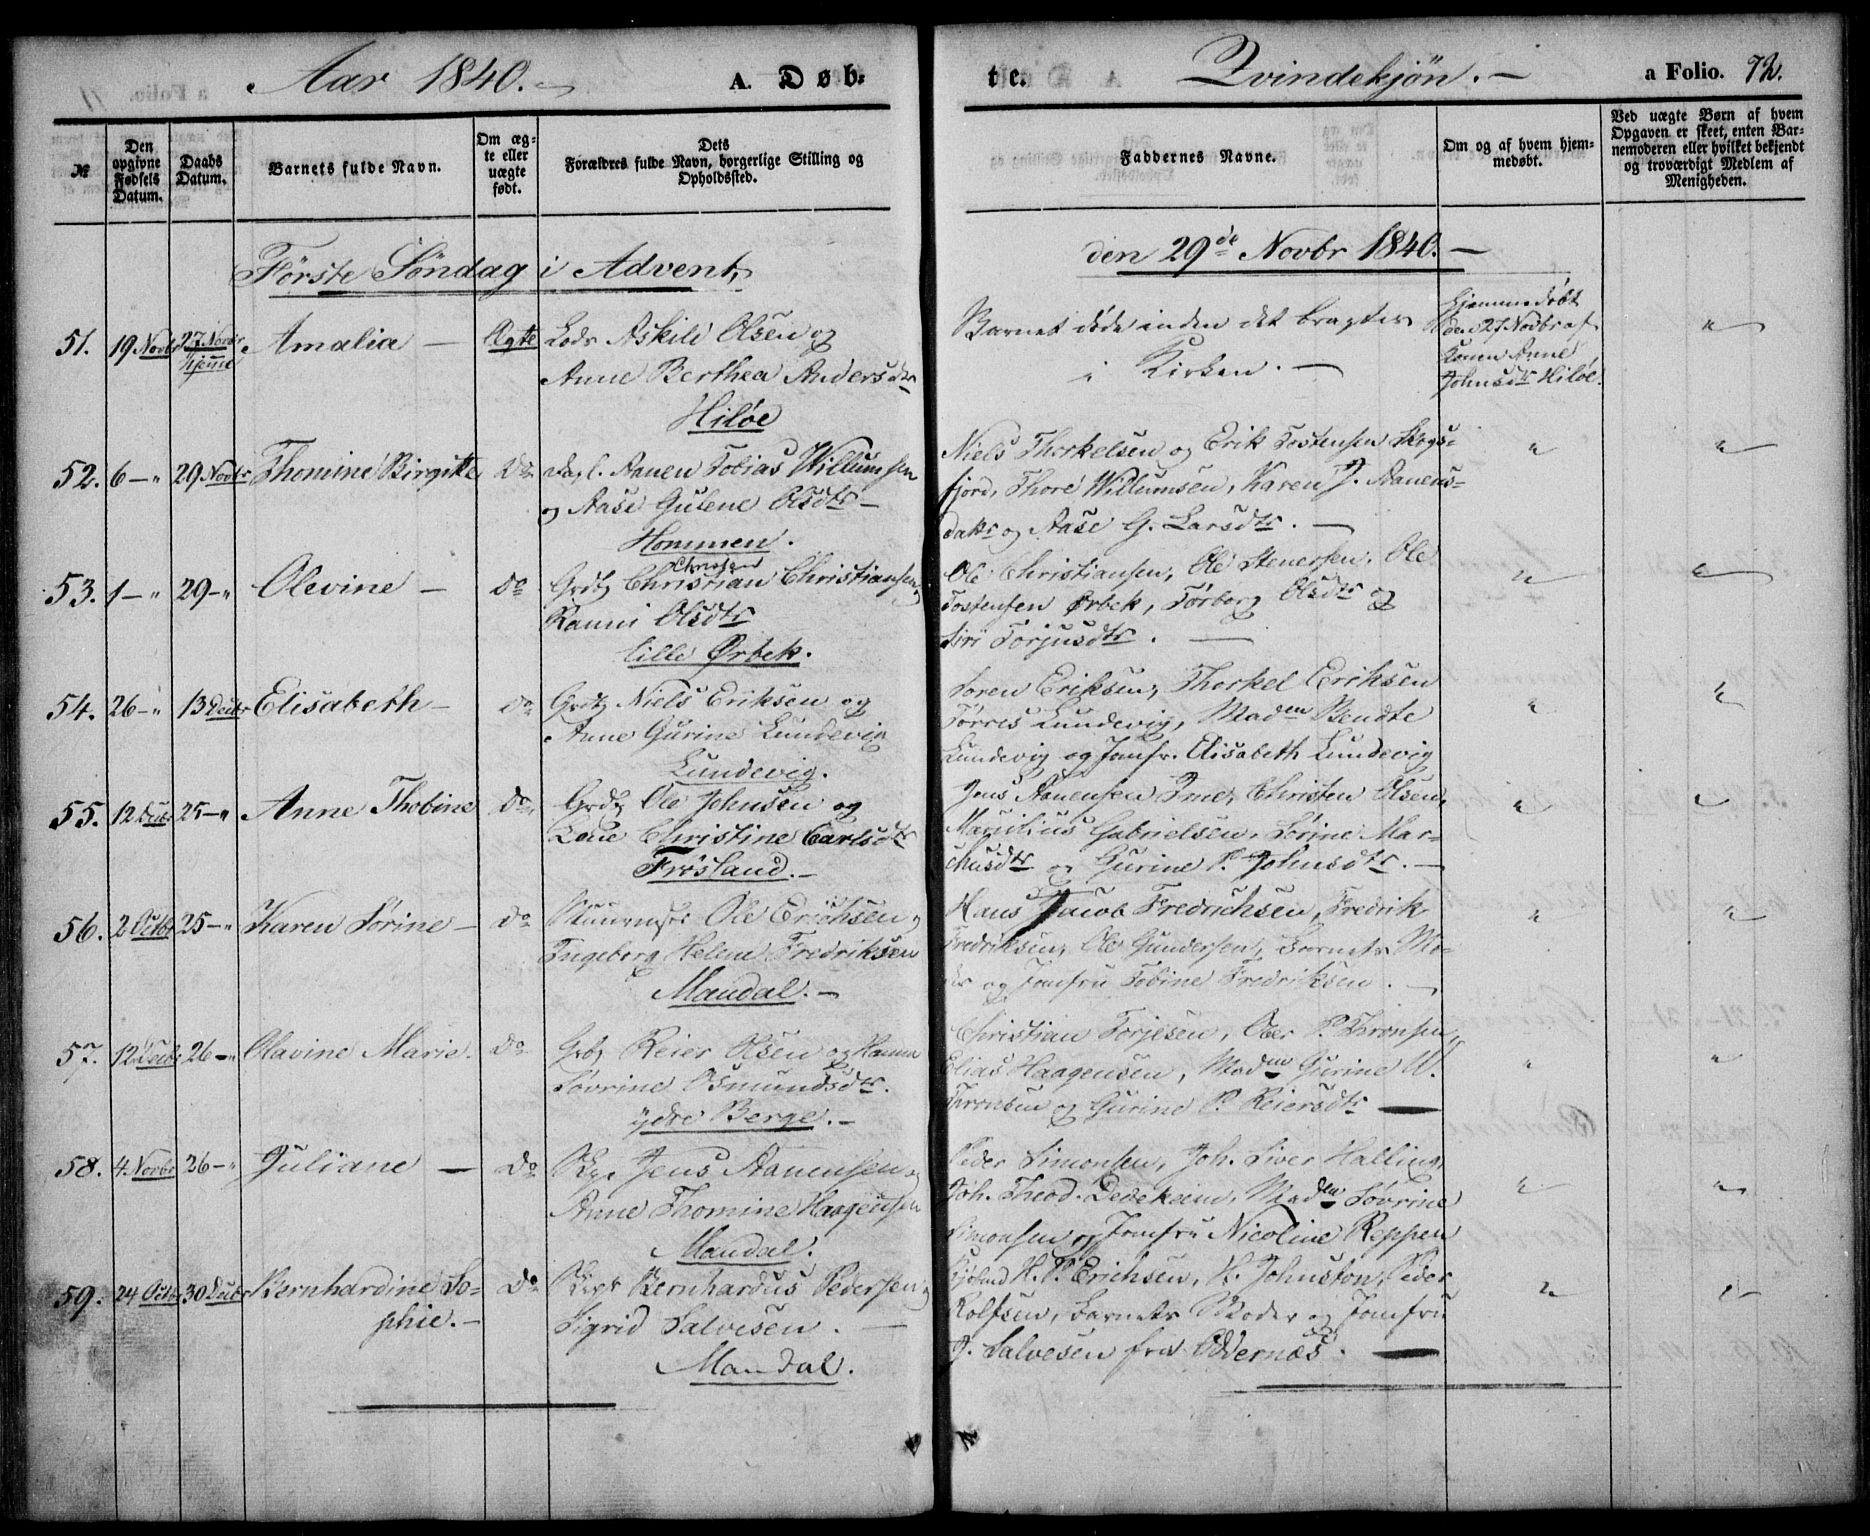 Aar 1840.
A. Døb-
te.
Qvindekjön.
a Folio. 72.
№
Den opgivne Fødsels Datum.
Daabs Datum.
Barnets fulde Navn.
Om ægte eller uægte født.
Dets Forældres fulde Navn, borgerlige Stilling og Opholdssted.
Faddernes Navne.
Om og af hvem hjemmedøbt.
Ved uægte Børn af hvem Opgaven er skeet, enten Barnemoderen eller hvilket bekjendt og troværdigt Medlem af Menigheden.
Förste Söndag i Advent,
den 29de Novbr 1840.
51. 19 Novbr 27 Novbr hjeme Amalia Ægte Lods Askild Olsen og
Anne Berthea Andersdtr
Hiløe
Barnet døde inden det bragtes
i Kirken.
Hjemmedöbt
den 27 Novbr af
Konen Anne
Johnsdtr Hiløe.
52. 6 — " 29 Novbr Thomine Birgitte Do Dagl. Aanen Tobias Willumsen
og Aase Gulene Olsdtr
Hommen.
Niels Thorkelsen og Erik Tostensen Skogs-
fjord, Thore Willumsen, Karen J. Aanens-
dattr og Aase G. Larsdtr.
53. 1 — " 29 — " Olevine Do Grdbr Christian Christiansen,
Ranni Olsdtr
lille Ørbek.
Ole Christiansen, Ole Stenersen, Ole
Tostensen Ørbek, Törborg Olsdtr og
Siri Torjusdtr.
54. 26 — " 13 Decbr Elisabeth Do Grdbr Niels Eriksen og
Anne Gurine Lundevig
Lundevig.
Soren Eriksen, Thorkel Eriksen
Törres Lundevig, Madm Bendte
Lundevig og Jomfr. Elisabeth Lundevig
55. 12 Decbr 25 — " Anne Thobine Do Grdbr Ole Johnsen og
Christine Carlsdtr
Frösland.
Jens Aanensen Ime, Christen Olsen,
Marsilius Gabrielsen, Sörine Mar-
chusdtr og Gurine P. Johnsdtr.
56. 2 Octbr 25 — " Karen Sörine Do Ole Erichsen og
Ingeborg Helene Fredriksen
Mandal.
Hans Jacob Fredrichsen, Fredrik
Fredriksen, Ole Gundersen, Barnets Mo-
der og Jomfru Tobine Fredriksen.
57. 12 Decbr 26 — " Olavine Marie. Do Grbr Reier Olsen og Hanna
Sövrine Osmundsdtr.
ydre Berge.
Christian Torjesen, Ober P. Thronsen,
Elias Haagensen, Madm Gurine W.
Thronsen og Gurine P. Reiersdtr
58. 4 Novbr 26 — " Juliane Do Jens Aanensen og
Anne Thomine Haagensen
Mandal.
Peder Simonsen, Joh. Siver Halling,
Joh. Theod. Dedekam, Madm Sövrine
Simonsen og Jomfru Nicoline Reppen
59. 24 Octbr 30 Decbr Bernhardine So-
phie. Do Bernhardus Pedersen og
Sigrid Salvesen.
Mandal.
Kjøbmd H. P. Erichsen, H. Johnston, Peder
Rolfsen, Barnets Moder og Jomfru
J. Salvesen fra Oddernæs.